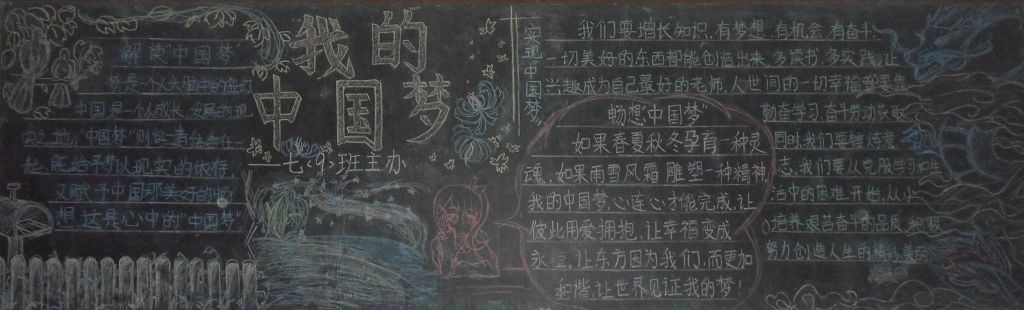 解读"中国梦"
梦是一个人头脑中的虚幻
中国是一个人成长、发展的现
起,既给予你以现实的依存,
又赋予中国那美好的畅
想,这是心中的"中国梦"
我的
中国梦
七.9.班主办
实现中国梦
我们要增长知识,有梦想,有机会,有奋斗,
一切美好的东西都能创造出来,多读书,多实践,让
兴趣成为自己最好的老师,人世间的一切幸福都要靠
勤奋学习,奋斗的动来取
同时我们要锤炼意
志,我们要从克服学习和生
活中的困难开始,从小
培养艰苦奋斗的品质,积极
努力创造人生的精彩
畅想"中国梦"
如果春夏秋冬孕育一种灵
魂,如果雨雪风霜雕塑一种精神
我的中国梦,心连心才能完成,让
彼此用爱拥抱,让幸福变成
永恒,让东方因为我们,而更加
和谐,让世界见证我的梦!